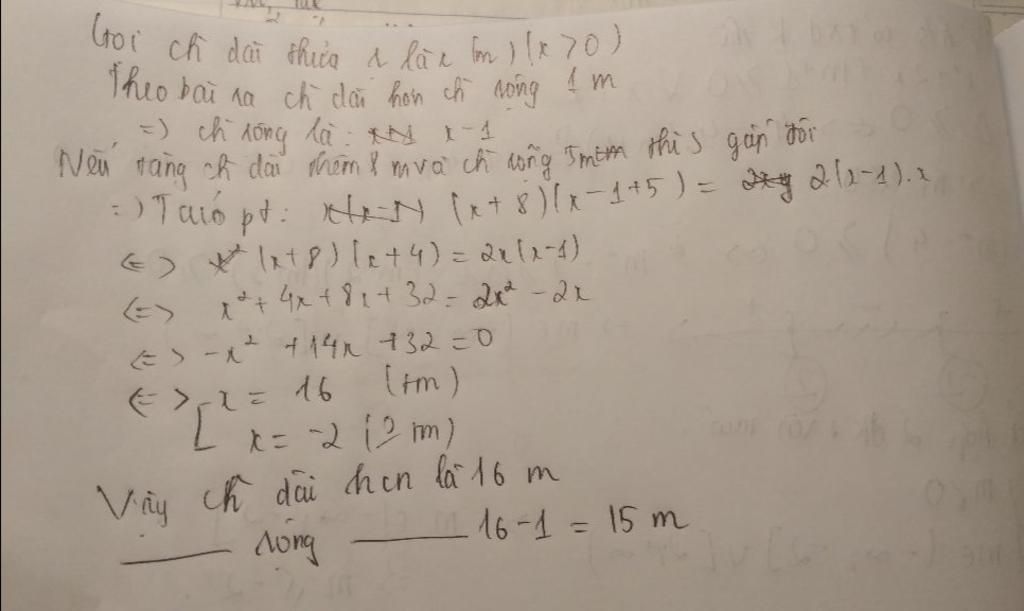 Gọi chì dài thửa 1 là x (m) (x > 0)
Theo bài ra chì dài hơn chì rộng 1 m
=) chì rộng là: x-1
Nếu tăng ch dài thêm 8 m và chì rộng 5m thì S gấp đôi
=) Ta có pt: (x+8)(x-1+5) = 2(x-1).x
<=> (x+8)(x+4) = 2x(x-1)
<=> x² + 4x + 8x + 32 = 2x² - 2x
<=> -x² + 14x + 32 = 0
<=> [ x = 16 (tm)
x = -2 (m)
Vậy ch dài hcn là 16 m
rộng 16-1 = 15 m